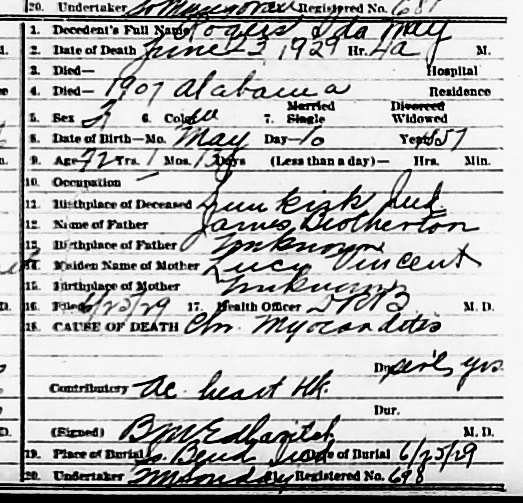 20. Undertaker Registered No. 687
1. Decedent's Full Name Rogers Ida May
2. Date of Death June 23 1929 Hr. 4a M.
3. Died— Hospital
4. Died— 1907 Alabama Residence
5. Sex F 6. Color W 7. Single Married Divorced Widowed
8. Date of Birth—Mo. May Day— 10 Year 1857
9. Age 72 Yrs. 1 Mos. 13 Days (Less than a day)— Hrs. Min.
10. Occupation —
11. Birthplace of Deceased Dunkirk Ind.
12. Name of Father James Brotherton
13. Birthplace of Father Unknown
14. Maiden Name of Mother Lucy Vincent
15. Birthplace of Mother Unknown
16. Filed 6/25/29 17. Health Officer M. D.
18. CAUSE OF DEATH Chr. Myocarditis
Dur. sev'l yrs.
Contributory Ac. heart
Dur.
(Signed) M. D.
19. Place of Burial So. Bend Ind Date of Burial 6/25/29
20. Undertaker Registered No. 698